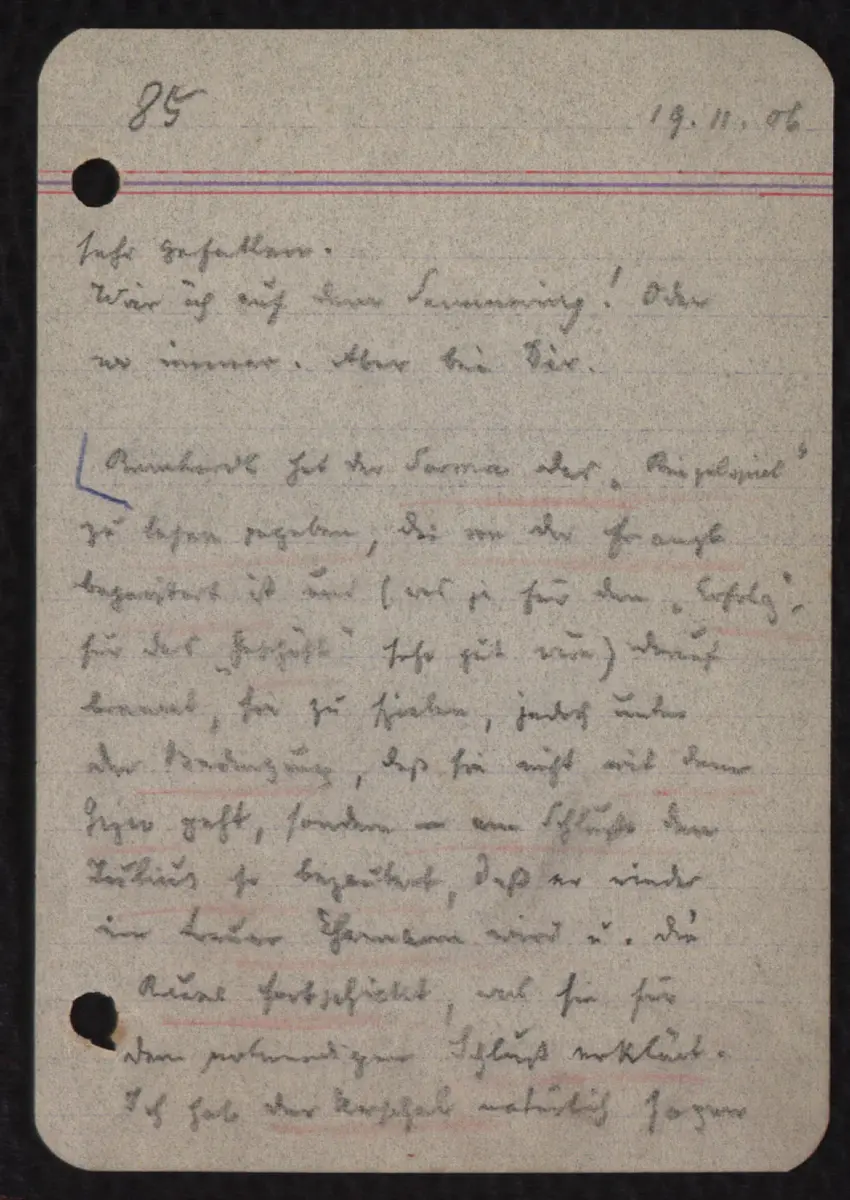 85
19. 11. 06
sehr gefallen.
Wär ich auf dem Semmering! Oder
wo immer. Aber bei Dir.
Reinhardt hat der Sorma das „Ringelspiel"
zu lesen gegeben, die von der Franzl
begeistert ist und (was ja für den „Erfolg",
für das „Geschäft" sehr gut wäre) darauf
brennt, sie zu spielen, jedoch unter
der Bedingung, daß sie nicht mit dem
geht, sondern – am Schluß den
so bezaubert, daß er wieder
ein treuer Ehemann wird u. die
fortschickt, was sie für
den notwendigen Schluß erklärt.
Ich hab der natürlich sagen